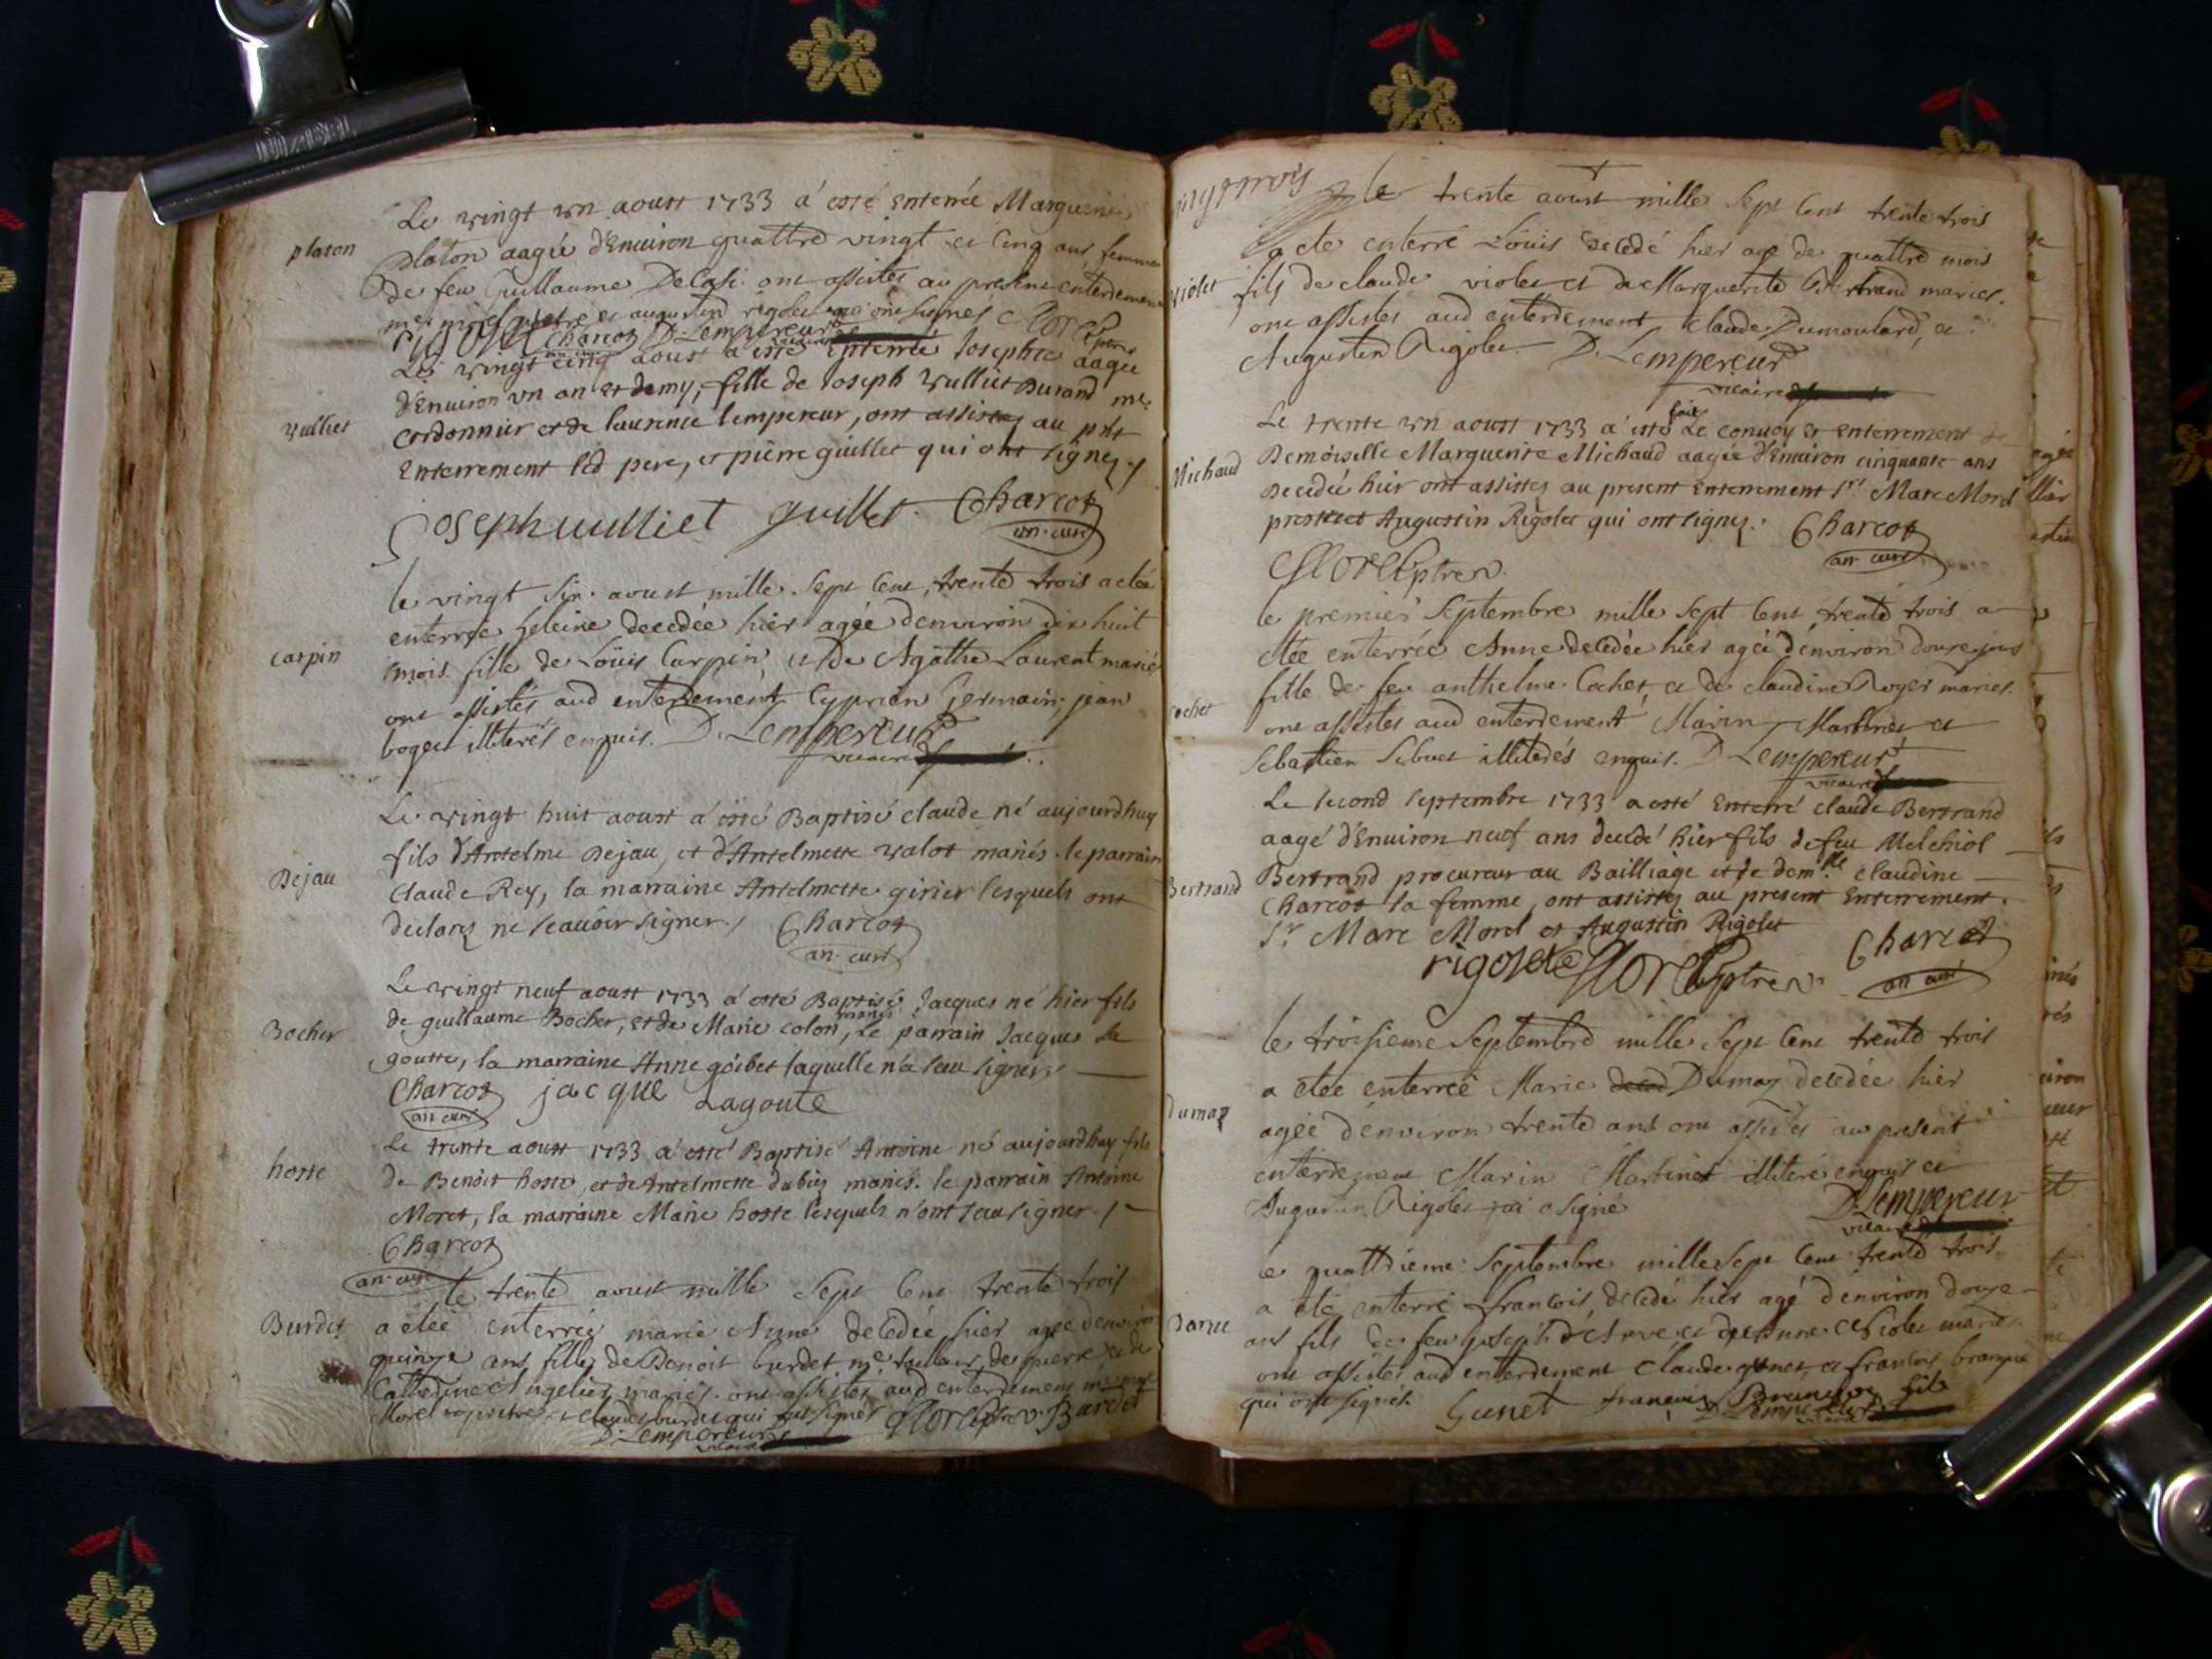 platon
Le vingt vn aoust 1733 à esté enterrée Marguerite
platon aagée d'Enuiron quattre vingt et cinq ans, femme
de feu Guillaume ont assistés au present enterrement
et augustin rigolet qui ont signés Morel ptre
rigolet Charcot D. Lempereur
an. curé vicaire
Le vingt cinq aoust à esté Enterrée Josephte aagée
d'Enuiron vn an et demy, fille de Joseph Vulliet Durand me.
vulliet
cordonnier et de laurence lempereur, ont assistez au pnt
Enterrement led pere, et pierre guillet qui ont signez./
Joseph vulliet guillet Charcot
an. curé
le vingt six aoust mille sept cent trente trois a etée
enterrée heleine decedée hier agée denviron dix huit
carpin
mois fille de Loüis Carpin et de Agathe Laurent mariés
ont assistés aud enterrement Cyprien Germain, jean
boget illiterés enquis. D. Lempereur
vicaire
Le vingt huit aoust à esté Baptisé claude né aujourdhuy
fils d'Antelme Dejau, et d'Antelmette valot mariés. le parrain
Dejau
Claude Rey, la marraine Antelmette girier lesquels ont
declarez ne scauoir signer./ Charcot
an. curé
Le vingt neuf aoust 1733 à esté Baptisé Jacques né hier fils
mariés
Bocher
de guillaume Bocher, et de Marie colon, Le parrain Jacques la
goutte, la marraine Anne goibet laquelle n'a sceu signer.
Charcot jacque Lagoute
an curé
Le trente aoust 1733 à esté Baptisé Antoine né aujourdhuy fils
hoste
de Benoit hoste, et de Antelmette dubiez mariés. le parrain Antoine
Moret, la marraine Marie hoste lesquels n'ont sceu signer./
Charcot
an. curé
le trente aoust mille sept cent trente trois
Burdet
a etée enterrée marie Anne decedée hier agée denviron
quinze ans fille de Benoit burdet me tailleur de pierre et de
Catherine Angelier mariés. ont assistés aud enterrement
Morel ptre et burdet qui ont signés Morel ptre Burdet
D. Lempereur
vicaire
le trente aoust mille sept cent trente trois
a ete enterré Loüis decedé hier agé de quattre mois
violet
fils de claude violet et de Marguerite Bertrand mariés.
ont assistés aud enterrement claude Dumoulard, et
Augustin Rigolet. D. Lempereur
vicaire
fait
Le trente vn aoust 1733 à esté Le conuoy et enterrement de
Michaud
Demoiselle Marguerite Michaud aagée d'Enuiron cinquante ans
Decedée hier ont assistez au present Enterrement Sr. Marc Morel
prestre et Augustin Rigolet qui ont signez. Charcot
an curé
Morel ptre
le premier Septembre mille sept cent trente trois a
etée enterrée Anne decedée hier agée d'environ douze jours
Cochet
fille de feu anthelme Cochet, et de claudine Royer mariés.
ont assistés aud enterrement Marin Martinet et
Sebastien Sibuet illiterés enquis. D Lempereur
vicaire
Le second septembre 1733 a esté Enterré claude Bertrand
aagé d'Enuiron neuf ans decedé hier fils de feu Melchiol
Bertrand
Bertrand procureur au Bailliage et de demlle claudine
Charcot sa femme, ont assistez au present Enterrement.
Sr Marc Morel et Augustin Rigolet
rigolet Morel ptre Charcot
an curé
le troisieme Septembre mille sept cent trente trois
Dumaz
a etée enterrée Marie Dumaz decedée hier
agée d'environ trente ans ont assistés au present
enterrement Marin Martinet illiteré enquis et
Augustin Rigolet qui a signé D. Lempereur
vicaire
le quattrieme Septembre mille sept cent trente trois
Darue
a été enterré francois, decedé hier agé d'environ douze
ans fils de feu joseph et de mariés
ont assistés aud enterrement Claude gunet, et francois
qui ont signés. Gunet francois fils
D. Lempereur
vicaire